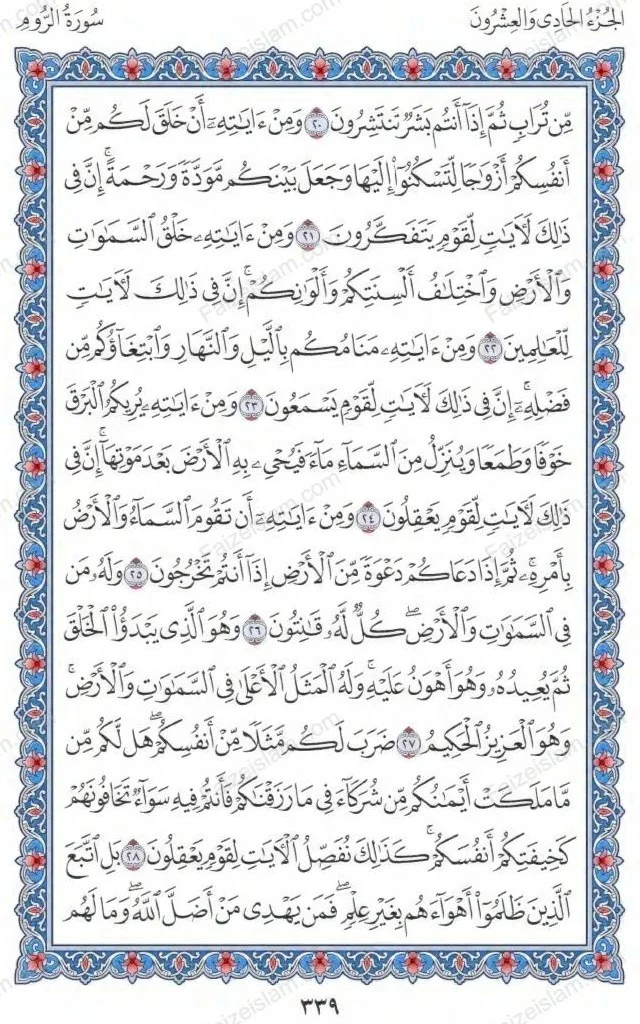 الجُزْءُ الحَادِى وَالعِشْرُونَ
سُورَةُ الرُّومِ
مِّن تُرَابٍ ثُمَّ إِذَآ أَنتُم بَشَرٌ تَنتَشِرُونَ ٢٠ وَمِنْ ءَايَٰتِهِۦٓ أَنْ خَلَقَ لَكُم مِّنْ
أَنفُسِكُمْ أَزْوَٰجًا لِّتَسْكُنُوٓا۟ إِلَيْهَا وَجَعَلَ بَيْنَكُم مَّوَدَّةً وَرَحْمَةً ۚ إِنَّ فِى
ذَٰلِكَ لَءَايَٰتٍ لِّقَوْمٍ يَتَفَكَّرُونَ ٢١ وَمِنْ ءَايَٰتِهِۦ خَلْقُ ٱلسَّمَٰوَٰتِ
وَٱلْأَرْضِ وَٱخْتِلَٰفُ أَلْسِنَتِكُمْ وَأَلْوَٰنِكُمْ ۚ إِنَّ فِى ذَٰلِكَ لَءَايَٰتٍ
لِّلْعَٰلِمِينَ ٢٢ وَمِنْ ءَايَٰتِهِۦ مَنَامُكُم بِٱلَّيْلِ وَٱلنَّهَارِ وَٱبْتِغَآؤُكُم مِّن
فَضْلِهِۦٓ ۚ إِنَّ فِى ذَٰلِكَ لَءَايَٰتٍ لِّقَوْمٍ يَسْمَعُونَ ٢٣ وَمِنْ ءَايَٰتِهِۦ يُرِيكُمُ ٱلْبَرْقَ
خَوْفًا وَطَمَعًا وَيُنَزِّلُ مِنَ ٱلسَّمَآءِ مَآءً فَيُحْىِۦ بِهِ ٱلْأَرْضَ بَعْدَ مَوْتِهَآ ۚ إِنَّ فِى
ذَٰلِكَ لَءَايَٰتٍ لِّقَوْمٍ يَعْقِلُونَ ٢٤ وَمِنْ ءَايَٰتِهِۦٓ أَن تَقُومَ ٱلسَّمَآءُ وَٱلْأَرْضُ
بِأَمْرِهِۦ ۚ ثُمَّ إِذَا دَعَاكُمْ دَعْوَةً مِّنَ ٱلْأَرْضِ إِذَآ أَنتُمْ تَخْرُجُونَ ٢٥ وَلَهُۥ مَن
فِى ٱلسَّمَٰوَٰتِ وَٱلْأَرْضِ ۖ كُلٌّ لَّهُۥ قَٰنِتُونَ ٢٦ وَهُوَ ٱلَّذِى يَبْدَؤُا۟ ٱلْخَلْقَ
ثُمَّ يُعِيدُهُۥ وَهُوَ أَهْوَنُ عَلَيْهِ ۚ وَلَهُ ٱلْمَثَلُ ٱلْأَعْلَىٰ فِى ٱلسَّمَٰوَٰتِ وَٱلْأَرْضِ ۚ
وَهُوَ ٱلْعَزِيزُ ٱلْحَكِيمُ ٢٧ ضَرَبَ لَكُم مَّثَلًا مِّنْ أَنفُسِكُمْ ۖ هَل لَّكُم مِّن
مَّا مَلَكَتْ أَيْمَٰنُكُم مِّن شُرَكَآءَ فِى مَا رَزَقْنَٰكُمْ فَأَنتُمْ فِيهِ سَوَآءٌ تَخَافُونَهُمْ
كَخِيفَتِكُمْ أَنفُسَكُمْ ۚ كَذَٰلِكَ نُفَصِّلُ ٱلْءَايَٰتِ لِقَوْمٍ يَعْقِلُونَ ٢٨ بَلِ ٱتَّبَعَ
ٱلَّذِينَ ظَلَمُوٓا۟ أَهْوَآءَهُم بِغَيْرِ عِلْمٍ ۖ فَمَن يَهْدِى مَنْ أَضَلَّ ٱللَّهُ ۖ وَمَا لَهُم
٣٣٩
Faizeislam.com